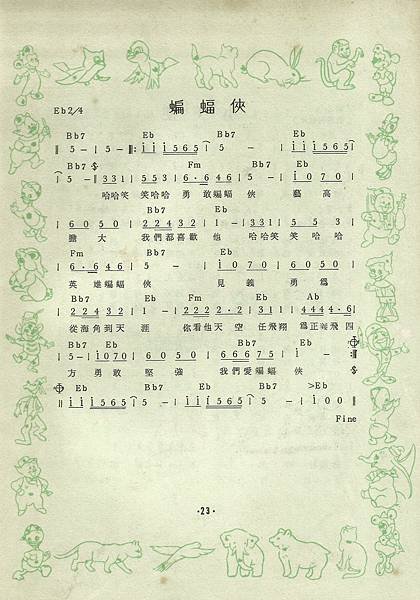 蝙蝠俠
Eb2/4
Bb7 Eb Bb7 Eb
‖ 5 - | 5 - ‖: i i i 5 6 5 | 5 - | 5 - | i i i 5 6 5 |
Bb7 Fm Bb7 Eb
| 5 - | 3 3 1 | 5 5 3 | 6 · 6 4 6 | 5 - | i 0 7 0 |
哈哈笑 笑哈哈 勇敢蝙蝠 俠 藝高
Bb7 Eb
| 6 0 5 0 | 2 2 4 3 2 | 1 - | 3 3 1 | 5 5 3 |
膽大 我們都喜歡 他 哈哈笑 笑哈哈
Fm Bb7 Eb
| 6 · 6 4 6 | 5 - | i 0 7 0 | 6 0 5 0 |
英雄蝙蝠 俠 見義 勇為
Bb7 Eb Bb7 Eb
| 2 2 4 3 2 | 1 - | 2 2 2 2 · 2 | 3 2 1 | 4 4 4 4 · 6 |
從海角到天 涯 你看他天空 任飛翔 為正義飛四
Bb7 Eb Bb7 Eb
| 5 - | i 0 7 0 | 6 0 5 0 | 6 6 6 7 5 | i - :‖
方 勇敢 堅強 我們愛蝙蝠 俠
Eb Bb7 Eb Bb7 >Eb
‖ i i i 5 6 5 | 5 - | 5 - | i i i 5 6 5 | 5 - | i 0 0 ‖
Fine
·23·